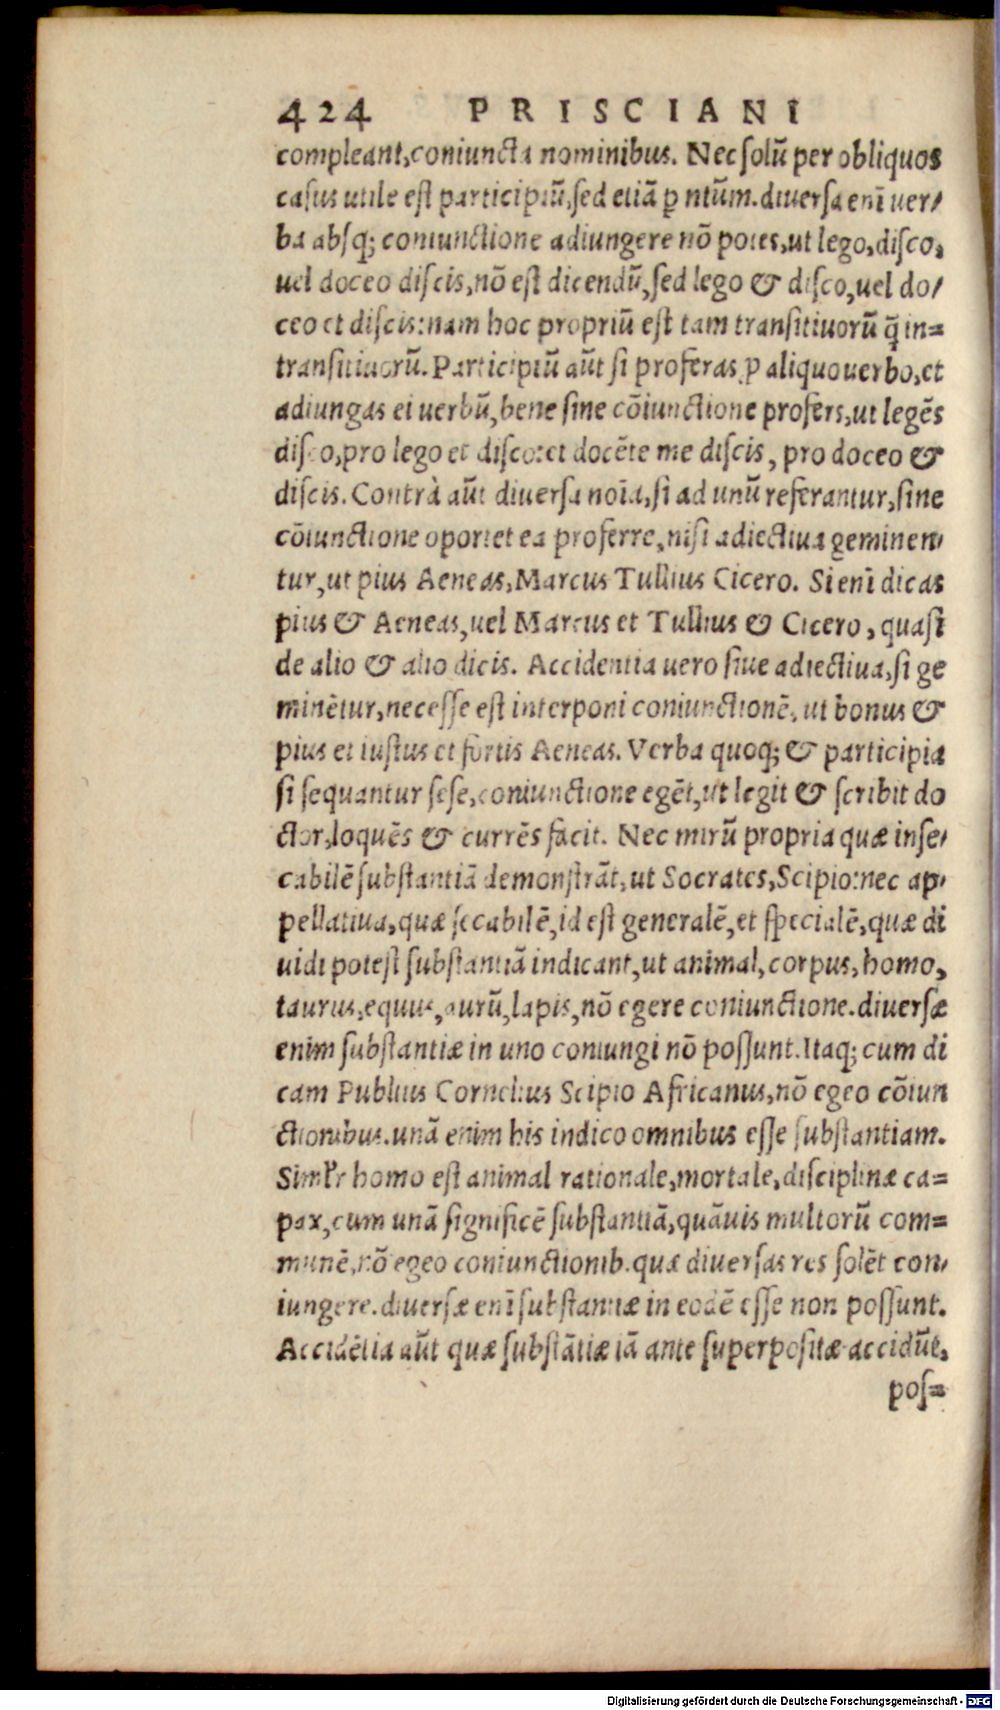 424 PRISCIANI
compleant, coniuncta nominibus. Nec solũ per obliquos
casus utile est participiũ, sed etiã ꝑ ntũm. diuersa enĩ uer/
ba absq; coniunctione adiungere nõ potes, ut lego, disco,
uel doceo discis, nõ est dicendũ, sed lego & disco, uel do/
ceo et discis: nam hoc propriũ est tam transitiuorũ q̃ in=
transitiuorũ. Participiũ aũt si proferas ꝓ aliquo uerbo, et
adiungas ei uerbũ, bene sine cõiunctione profers, ut legẽs
disco, pro lego et disco: et docẽte me discis, pro doceo &
discis. Contrà aũt diuersa noĩa, si ad unũ referantur, sine
cõiunctione oportet ea proferre, nisi adiectiua geminen/
tur, ut pius Aeneas, Marcus Tullius Cicero. Si enĩ dicas
pius & Aeneas, uel Marcus et Tullius & Cicero, quasi
de alio & alio dicis. Accidentia uero siue adiectiua, si ge
minẽtur, necesse est interponi coniunctionẽ, ut bonus &
pius et iustus et fortis Aeneas. Verba quoq; & participia
si sequantur sese, coniunctione egẽt, ut legit & scribit do
ctor, loquẽs & currẽs facit. Nec mirũ propria quæ inse/
cabilẽ substantiã demonstrãt, ut Socrates, Scipio: nec ap/
pellatiua, quæ secabilẽ, id est generalẽ, et specialẽ, quæ di
uidi potest substantiã indicant, ut animal, corpus, homo,
taurus, equus, aurũ, lapis, nõ egere coniunctione. diuersæ
enim substantiæ in uno coniungi nõ possunt. Itaq; cum di
cam Publius Cornelius Scipio Africanus, nõ egeo cõiun
ctionibus. unã enim his indico omnibus esse substantiam.
Simĩr homo est animal rationale, mortale, disciplinæ ca=
pax, cum unã significẽ substantiã, quãuis multorũ com=
munẽ, nõ egeo coniunctionib. quæ diuersas res solẽt con/
iungere. diuersæ enĩ substantiæ in eodẽ esse non possunt.
Accidẽtia aũt quæ substãtiæ iã ante superpositæ accidũt,
pos=
Digitalisierung gefördert durch die Deutsche Forschungsgemeinschaft - DFG